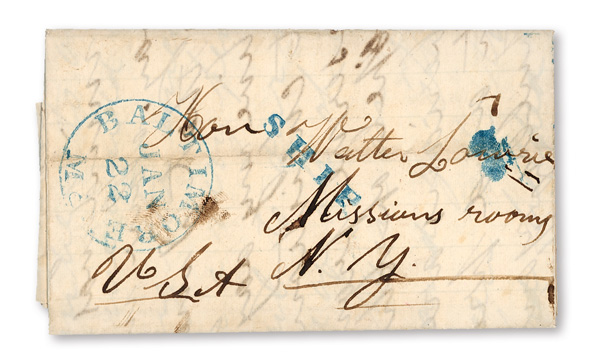 BALTIMORE Md.
JAN
22
SHIP
7
Hon Walter Lowrie
Missions rooms
N. Y.
U S A